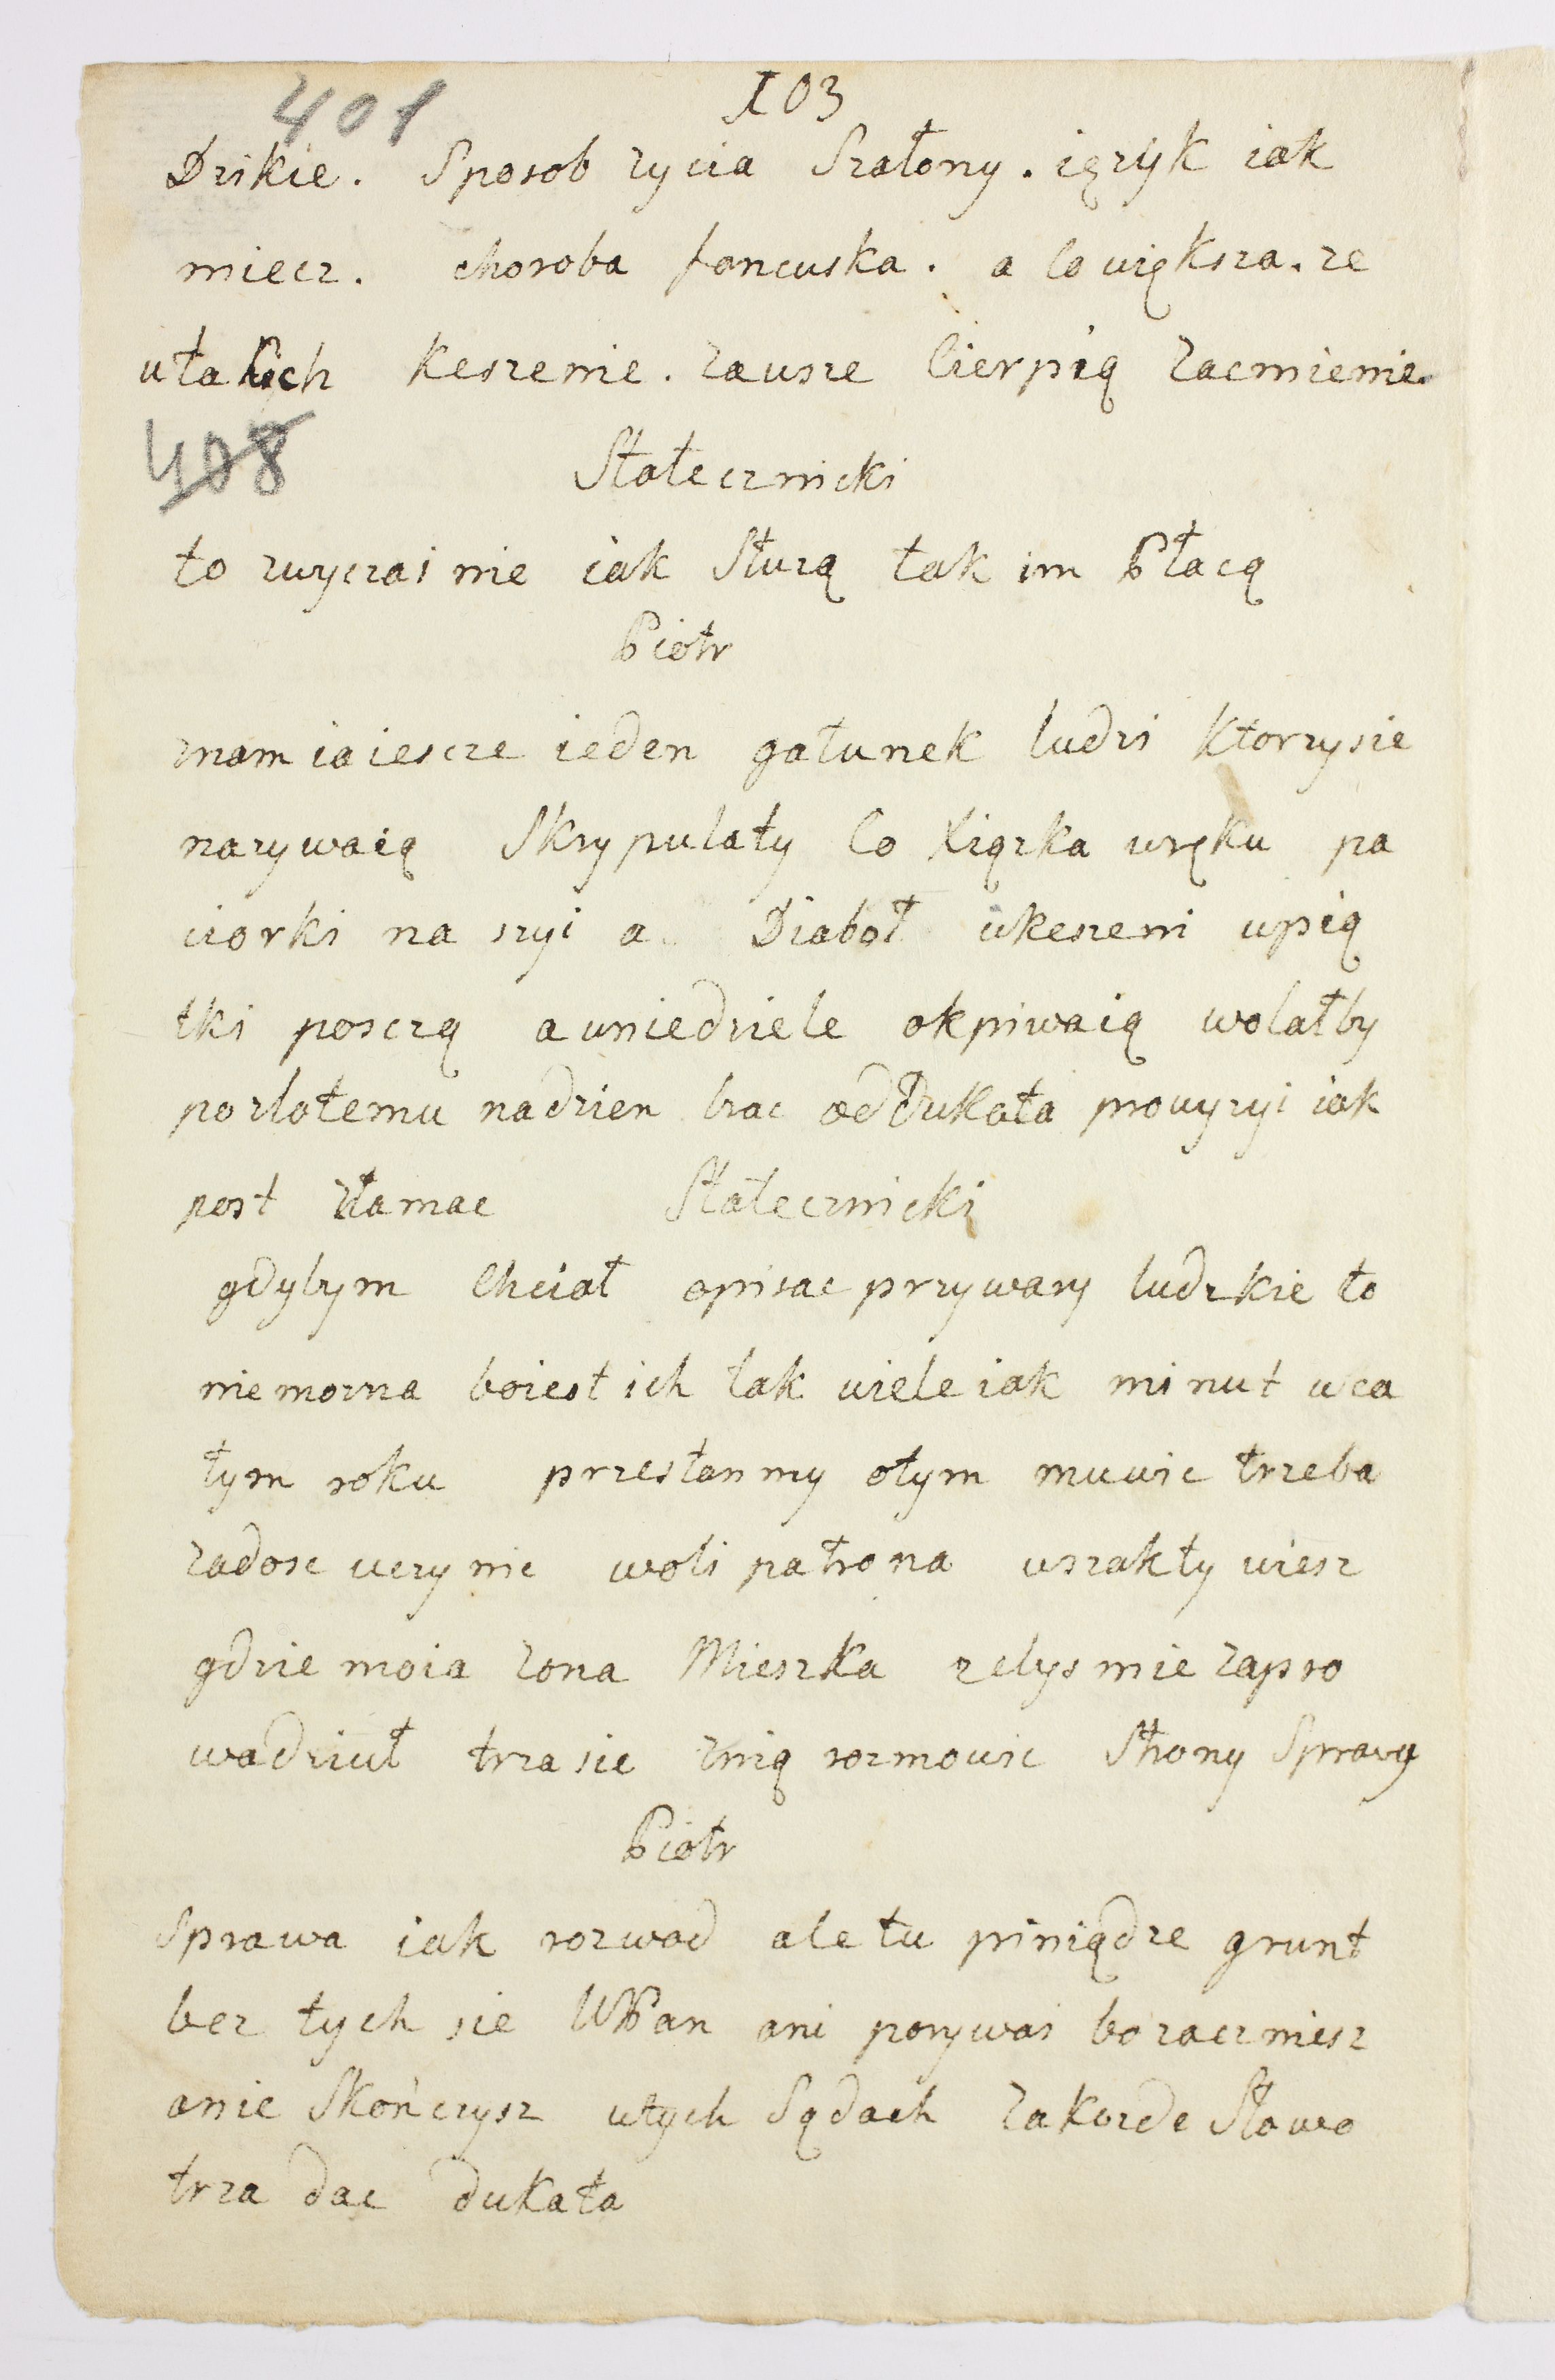 401 103
Dzikie. Sposob zycia Szalony. ięzyk iak
miecz. choroba francuska. a co uiększa. ze
utakich keszenie. zausze Cierpią zacmienie
408
Statecznicki
to zwyczainie iak Służą tak im Płacą
Piotr
znam iaiescze ieden gatunek ludzi ktorzysie
nazywaią Skrypulaty Co Xiązka wręku pa
ciorki na szyi a Diaboł ukeszeni upią
tki poszczą auniedziele okpiwaią wolałby
pozlotemu nadzien brac od Dukata prouyzyi iak
post złamac Statecznicki
gdybym Chciał opisac przywary ludzkie to
niemozna boiest ich tak uiele iak minut uca
łym roku przestanmy otym muuic trzeba
zadosc uczynic woli patrona uszakty uiesz
gdzie moia zona Mieszka zebys mie zapro
wadziuł trza sie znią rozmouic Strony Sprawy
Piotr
Sprawa iak rozwod ale tu piniądze grunt
bez tych sie WPan ani porywai bo zaczniesz
anie Skończysz utych Sądach zakozde Słowo
trza dac dukata